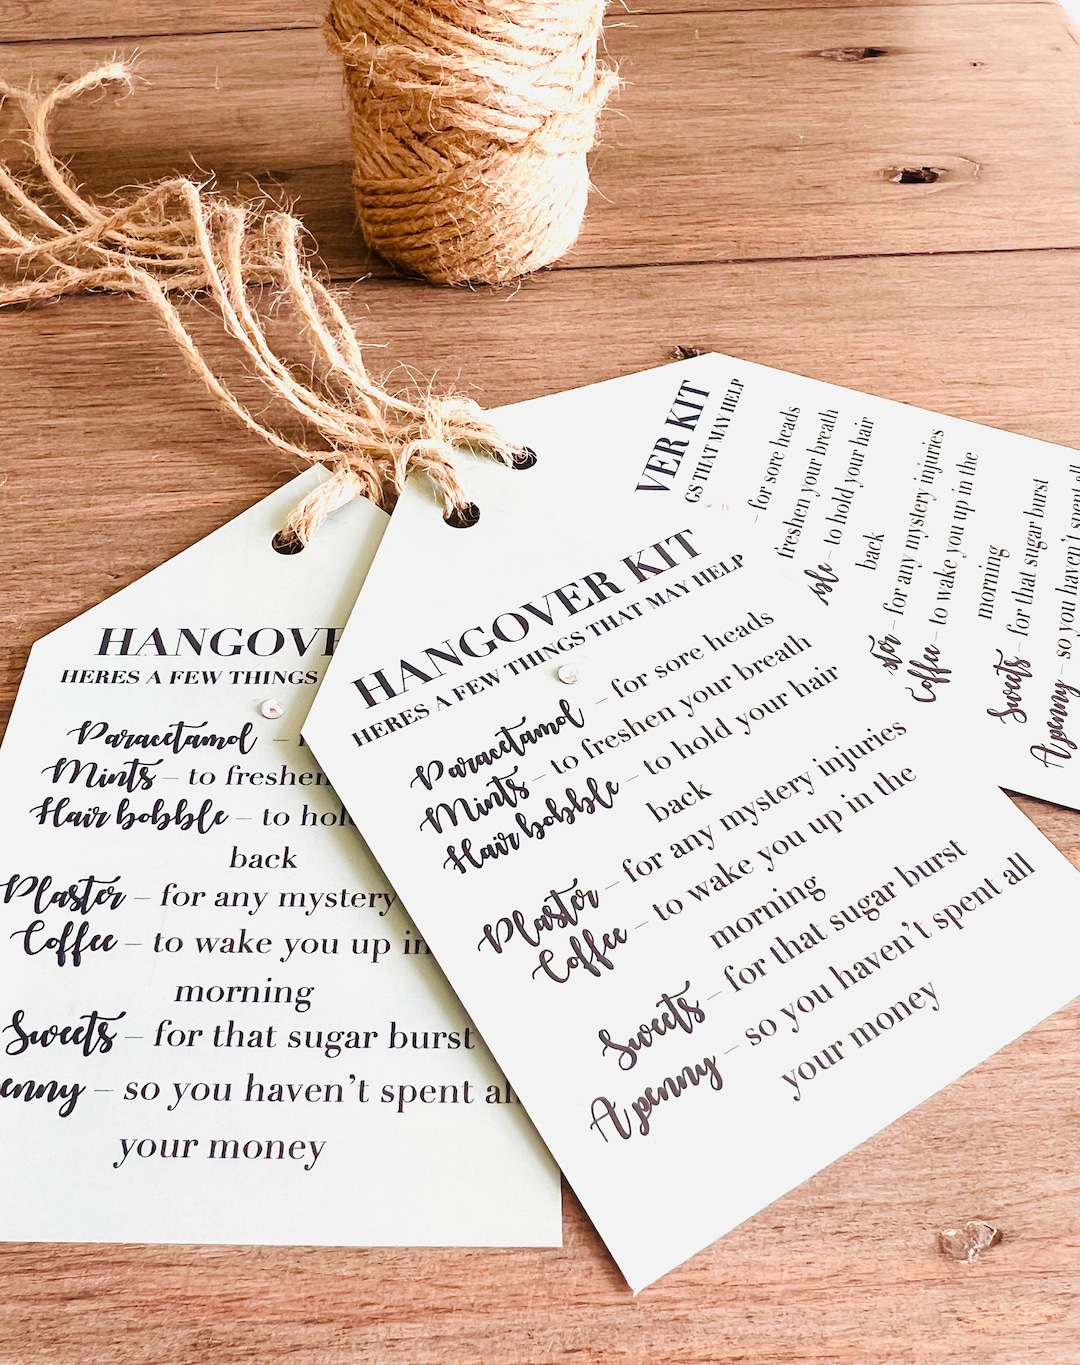 HANGOVE
HERES A FEW THINGS
Paracetamol –
Mints – to freshen
Hair bobble – to hol
back
Plaster – for any mystery
Coffee – to wake you up in
morning
Sweets – for that sugar burst
enny – so you haven't spent al
your money
HANGOVER KIT
HERES A FEW THINGS THAT MAY HELP
Paracetamol – for sore heads
Mints – to freshen your breath
Hair bobble – to hold your hair
back
Plaster – for any mystery injuries
Coffee – to wake you up in the
morning
Sweets – for that sugar burst
A penny – so you haven't spent all
your money
VER KIT
GS THAT MAY HELP
– for sore heads
freshen your breath
ble – to hold your hair
back
ster – for any mystery injuries
Coffee – to wake you up in the
morning
Sweets – for that sugar burst
A penny – so you haven't spent all